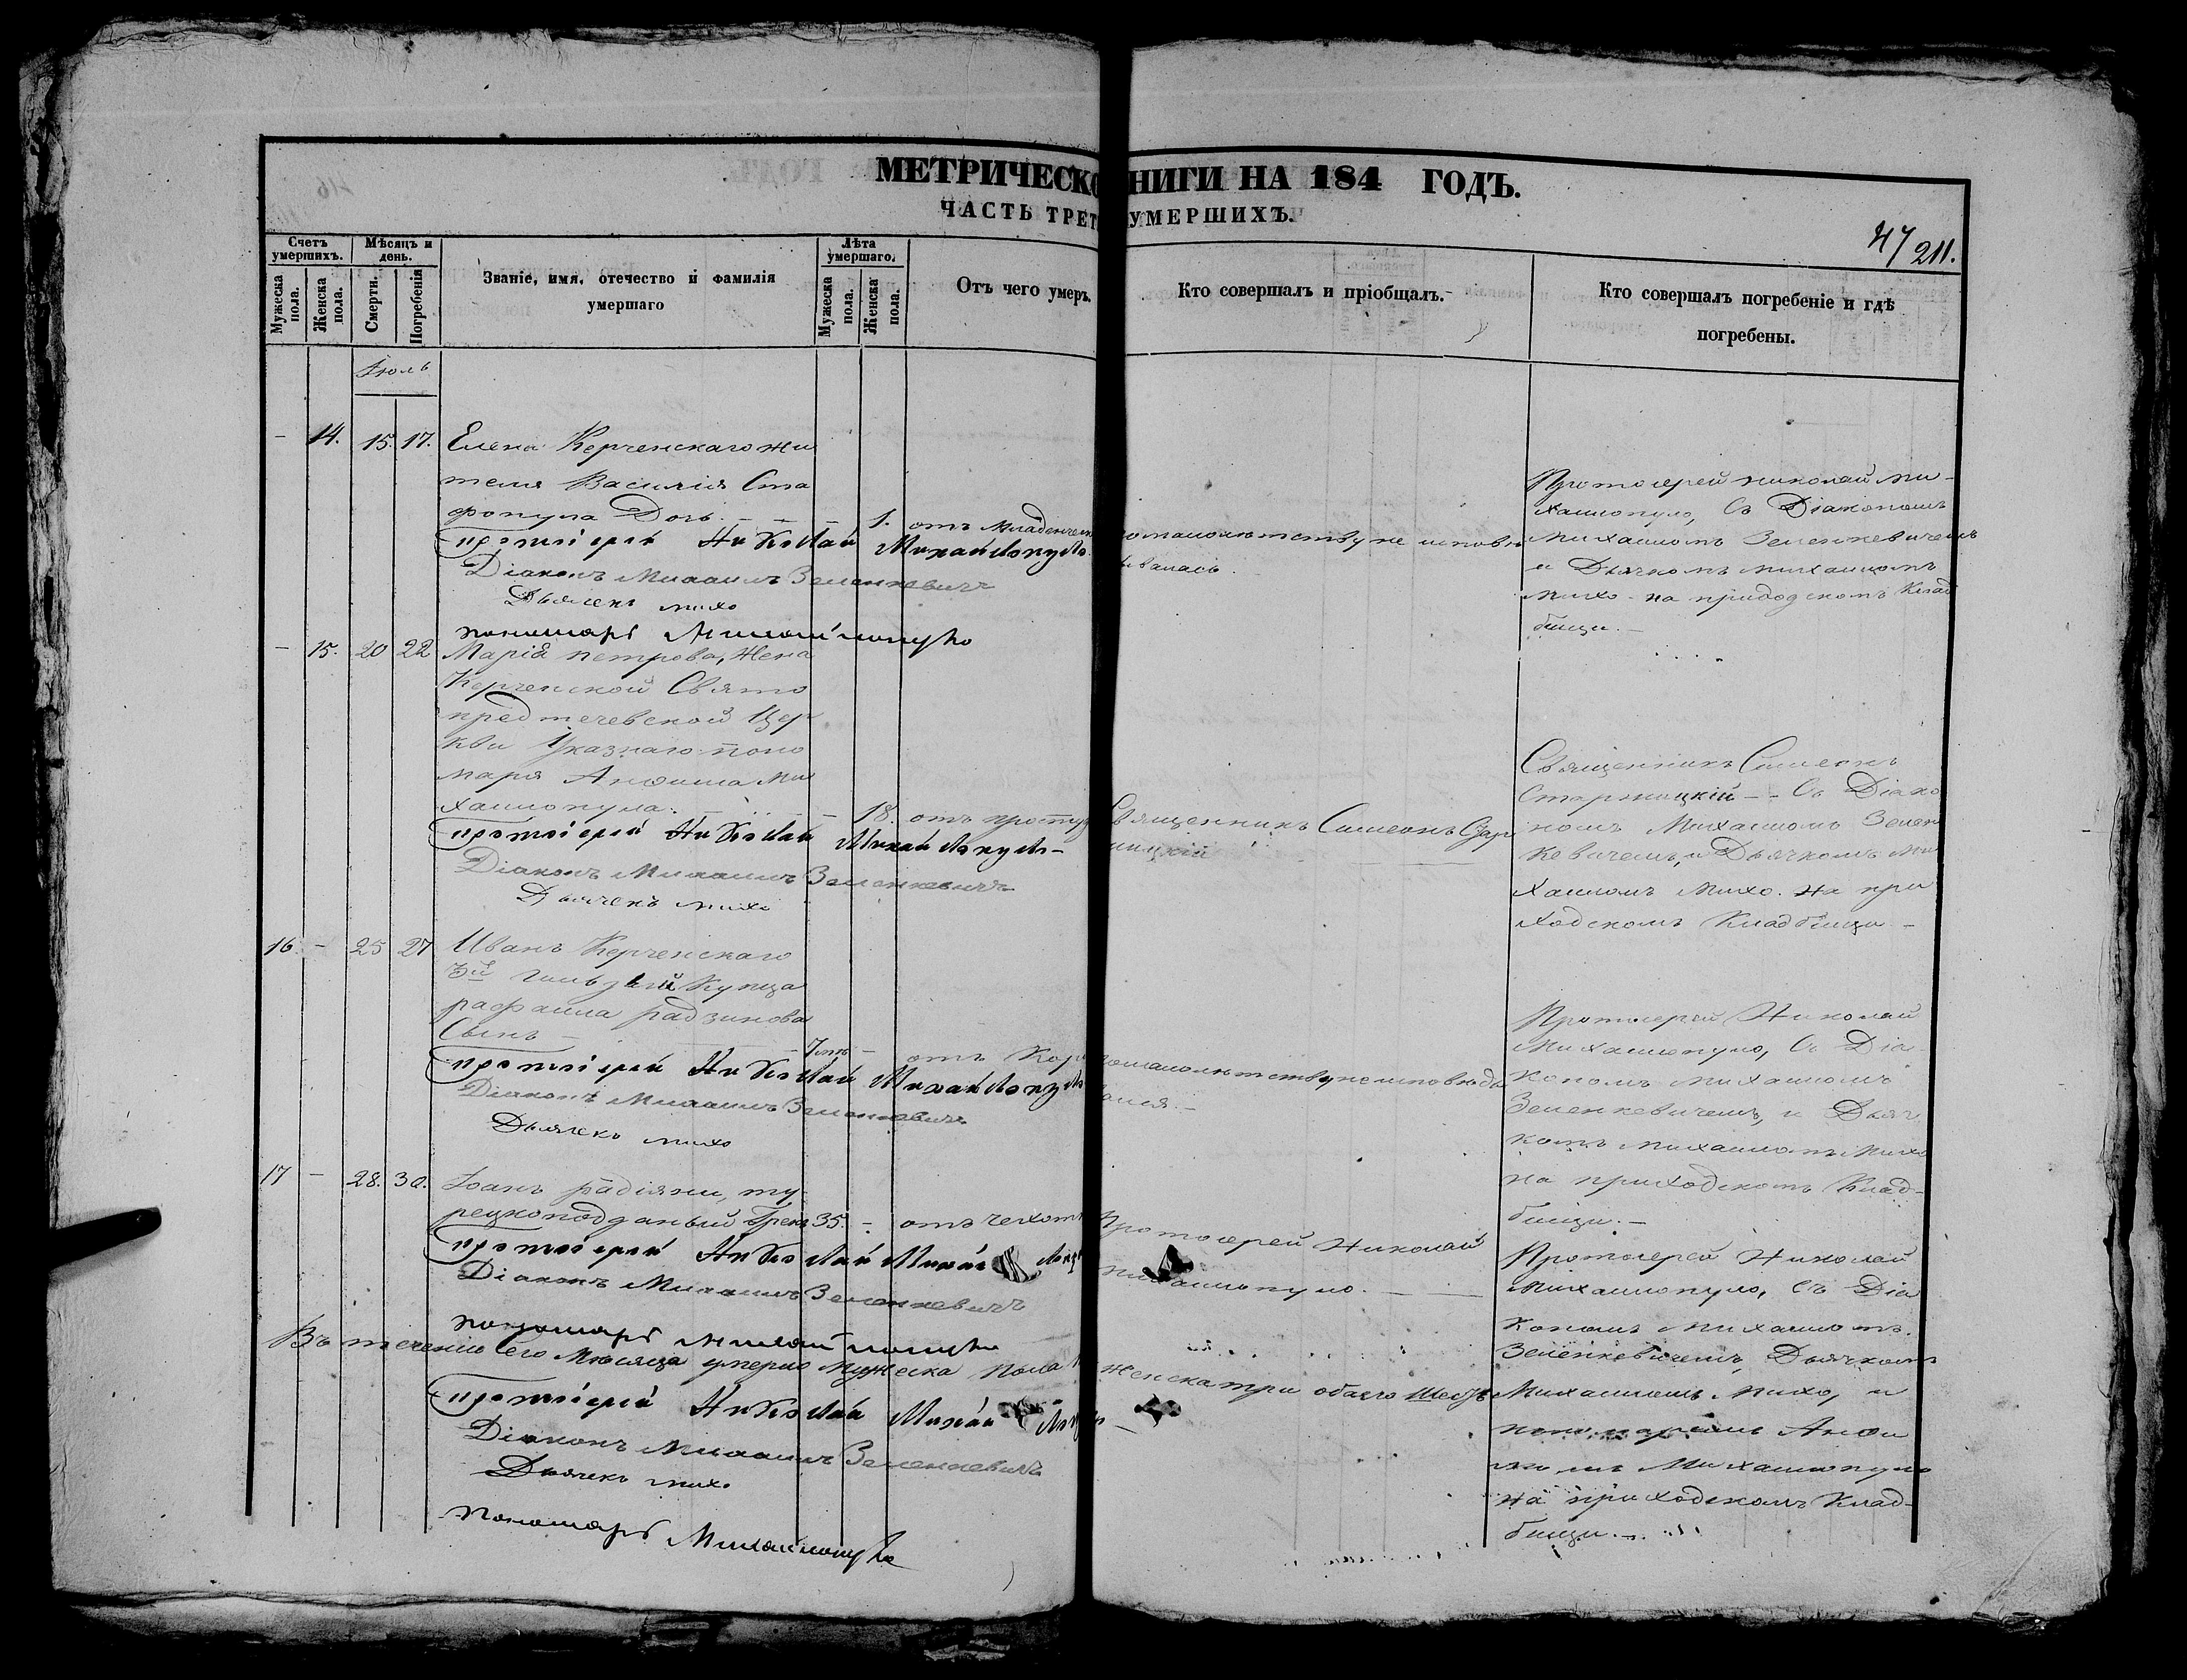 МЕТРИЧЕСКО НИГИ НА 184 ГОДЪ.
ЧАСТЬ ТРЕТ УМЕРШИХЪ.
47
211.
Счетъ умершихъ.
Мужеска пола.
Женска пола.
Мѣсяцъ и день.
Смерти.
Погребенія
Званіе, имя, отечество и фамилія
умершаго
Лѣта умершаго.
Мужеска пола.
Женска пола.
Отъ чего умеръ.
Кто совершалъ и пріобщалъ.
Кто совершалъ погребеніе и гдѣ
погребены.
Іюль
- 14. 15. 17. Елена Керченскаго жи
теля Василія Ста
фопула Дочь. 1. отъ Младенчес
Протоіерей Николай Михайлопуло
Діаконъ Михаилъ Зеленкевичъ
Дьячекъ михо
пономарь Михаилопуло
помалолетству не исповѣ
ывалась.
Протоіерей николай ми-
хаилопуло, Съ Діакономъ
михаиломъ Зеленкевичемъ
и Дьячкомъ михаиломъ
михо на приходскомъ Клад
бищи.
- 15. 20 22 Марія петрова, жена
Керченской Свято
предтечевской Цер
кви Указнаго поно
маря Анѳима Ми
хаилопула. 18. отъ просту
Протоіерей Николай Михайлопуло
Діаконъ Михаилъ Зеленкевичъ
Дьячекъ михо
Священникъ Симеонъ Стар
ницкій
Священникъ Симеонъ
Старницкій - Съ Діако
номъ Михаиломъ Зелен
кевичемъ, и Дьячкомъ Ми
хаиломъ Михо. на при
ходскомъ Кладбищи -
16. - 25 27 Иванъ Керченскаго
3й гильдіи Купца
рафаила радзинова
Сынъ 7 - отъ Кор
Протоіерей Николай Михайлопуло
Діаконъ Михаилъ Зеленкевичъ
Дьячекъ михо
помалолетству неисповѣда
лся.-
Протоіерей Николай
Михаилопуло, Съ Діа
кономъ михаиломъ
Зеленкевичемъ, и Дьяч
комъ михаиломъ Михо
на приходскомъ Клад-
бищи.-
17 - 28. 30. Іоанъ радіяни, ту
рецкоподданый Грекъ 35. - отъ чехот
Протоіерей Николай Михайлопу
Діаконъ Михаилъ Зеленкевичъ
пономарь Михаилопуло
Протоіерей Николай
михаилопуло.
Протоіерей Николай
Михаилопуло, Съ Діа
кономъ Михаиломъ
Зеленкевичемъ, Дьячкомъ
Михаиломъ Михо, и
пономаремъ Анѳи
момъ Михаилопуло
на приходскомъ Клад-
бищи.-
Въ теченіи Сего Мѣсяца умерло Мужеска пола женска три обаего Шесть
Протоіерей Николай Михайлопуло
Діаконъ Михаилъ Зеленкевичъ
Дьячекъ михо
Пономарь Михаилопуло